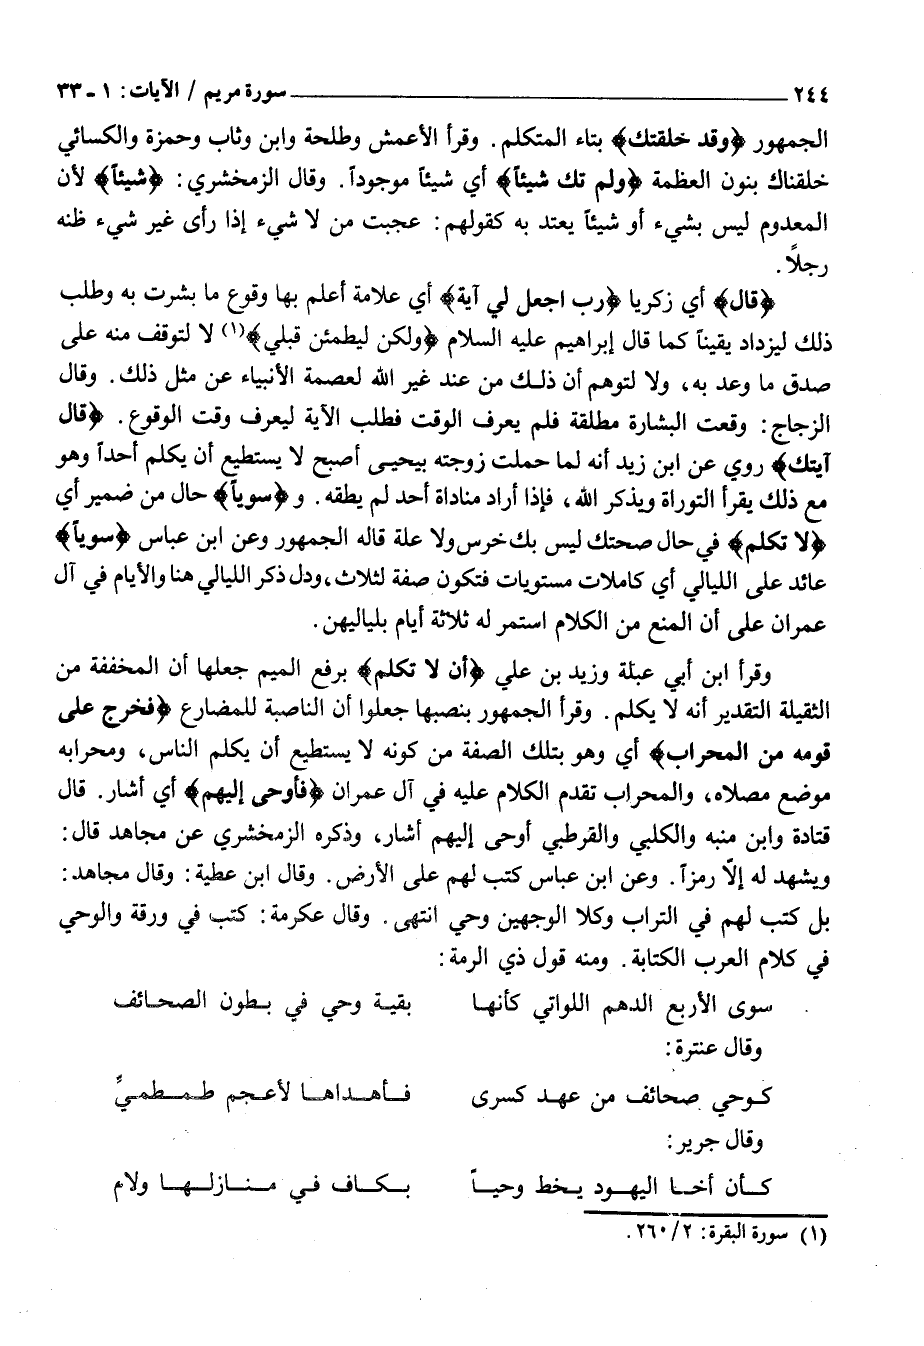 ٢٤٤ سورة مريم / الآيات: ١ - ٣٣
الجمهور ﴿وقد خلقتك﴾ بتاء المتكلم. وقرأ الأعمش وطلحة وابن وثاب وحمزة والكسائي
خلقناك بنون العظمة ﴿ولم تك شيئاً﴾ أي شيئاً موجوداً. وقال الزمخشري: ﴿شيئاً﴾ لأن
المعدوم ليس بشيء أو شيئاً يعتد به كقولهم: عجبت من لا شيء إذا رأى غير شيء ظنه
رجلاً.
﴿قال﴾ أي زكريا ﴿رب اجعل لي آية﴾ أي علامة أعلم بها وقوع ما بشرت به وطلب
ذلك ليزداد يقيناً كما قال إبراهيم عليه السلام ﴿ولكن ليطمئن قبلي﴾(١) لا لتوقف منه على
صدق ما وعد به، ولا لتوهم أن ذلك من عند غير الله لعصمة الأنبياء عن مثل ذلك. وقال
الزجاج: وقعت البشارة مطلقة فلم يعرف الوقت فطلب الآية ليعرف وقت الوقوع. ﴿قال
آيتك﴾ روي عن ابن زيد أنه لما حملت زوجته بيحيى أصبح لا يستطيع أن يكلم أحداً وهو
مع ذلك يقرأ التوراة ويذكر الله، فإذا أراد مناداة أحد لم يطقه. و ﴿سوياً﴾ حال من ضمير أي
﴿لا تكلم﴾ في حال صحتك ليس بك خرس ولا علة قاله الجمهور وعن ابن عباس ﴿سوياً﴾
عائد على الليالي أي كاملات مستويات فتكون صفة لثلاث، ودل ذكر الليالي هنا والأيام في آل
عمران على أن المنع من الكلام استمر له ثلاثة أيام بلياليهن.
وقرأ ابن أبي عبلة وزيد بن علي ﴿أن لا تكلم﴾ برفع الميم جعلها أن المخففة من
الثقيلة التقدير أنه لا يكلم. وقرأ الجمهور بنصبها جعلوا أن الناصبة للمضارع ﴿فخرج على
قومه من المحراب﴾ أي وهو بتلك الصفة من كونه لا يستطيع أن يكلم الناس، ومحرابه
موضع مصلاه، والمحراب تقدم الكلام عليه في آل عمران ﴿فأوحى إليهم﴾ أي أشار. قال
قتادة وابن منبه والكلبي والقرطبي أوحى إليهم أشار، وذكره الزمخشري عن مجاهد قال:
ويشهد له إلّا رمزاً. وعن ابن عباس كتب لهم على الأرض. وقال ابن عطية: وقال مجاهد:
بل كتب لهم في التراب وكلا الوجهين وحي انتهى. وقال عكرمة: كتب في ورقة والوحي
في كلام العرب الكتابة. ومنه قول ذي الرمة:
سوى الأربع الدهم اللواتي كأنها بقية وحي في بطون الصحائف
وقال عنترة:
كوحي صحائف من عهد كسرى فأهداها لأعجم طمطميِّ
وقال جرير:
كأن أخا اليهود يخط وحياً بكاف في منازلها ولام
(١) سورة البقرة: ٢/ ٢٦٠.